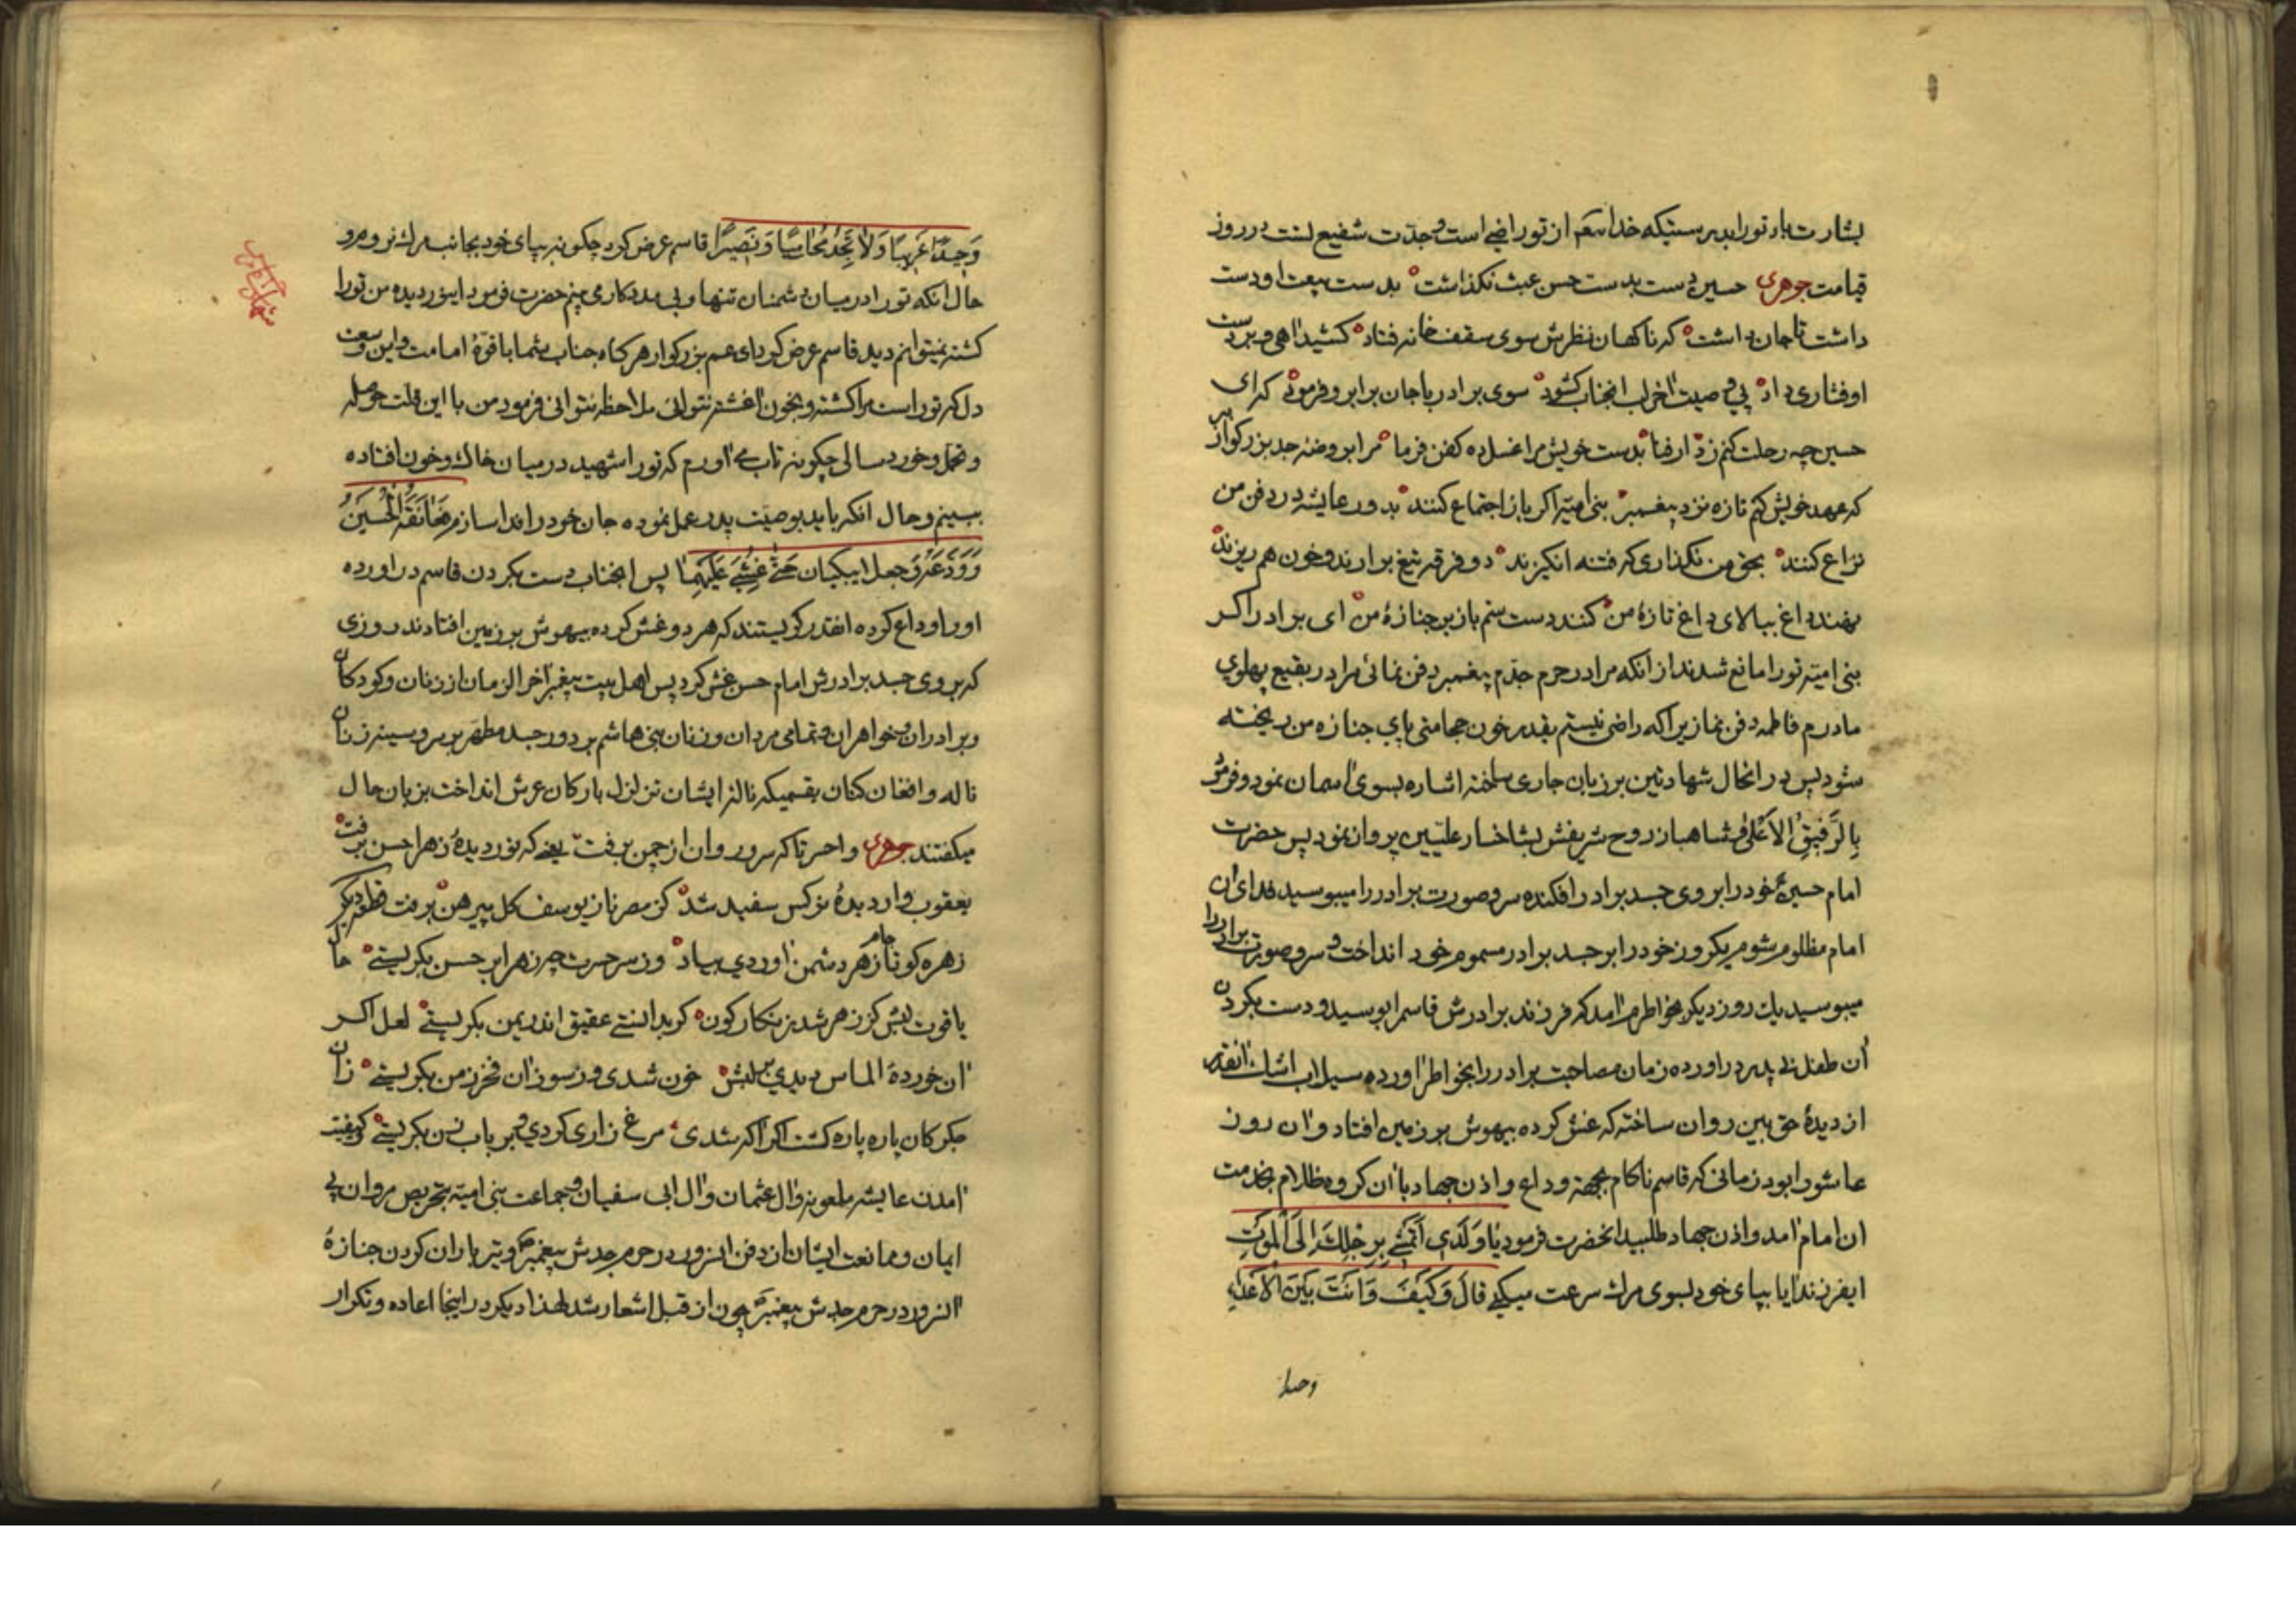 بشارت باد تو را بدرستیکه خدا از تو راضی است و جدّت شفیع است در روز
قیامت جوهری حسین دست بدست حسن عبث نکذاشت بدست بیعت او دست
داشت تا جان داشت که ناکهان نظرش سوی سقف خانه فتاد کشید اهی و بر دست
او فشاری داد پی وصیت اخر لب انجناب کشود سوی برادر با جان برابر و فرمود که ای
حسین چه رحلت کنم ز دار فنا بدست خویش مرا غسل ده کفن فرما مرا بروضه جد بزرکوار ببر
که عهد خویش کنم تازه نزد پیغمبر بنی امیّه اکر باز اجتماع کنند بدور عایشه در دفن من
نزاع کنند بحق من نکذاری که فتنه انکیزند دو فرقه تیغ برارند و خون هم ریزند
نهند داغ ببالای داغ تازهٔ من کنند دست ستم باز بر جنازهٔ من ای برادر اکر
بنی امیّه تو را مانع شدند از انکه مرا در حرم جدّم پیغمبر دفن نمائی مرا در بقیع پهلوی
مادرم فاطمه دفن نما زیرا که راضی نیستم بقدر خون حجامتی پای جنازه من ریخته
شود پس در انحال شهادتین بر زبان جاری ساخته اشاره بسوی اسمان نمود و فرمود
بِالرَّفِیقِ الاَعْلیٰ و شاهباز روح شریفش بشاخسار علیّین پرواز نمود پس حضرت
امام حسین خود را بروی جسد برادر افکنده سر و صورت برادر را میبوسید فدای ان
امام مظلوم شوم یکروز خود را بر جسد برادر مسموم خود انداخت و سر و صورت برادر را
میبوسید یك روز دیکر بخاطرم امد که فرزند برادرش قاسم را بوسید و دست بکردن
آن طفل بی پدر دراورده زمان مصاحبت برادر را بخواطر اورده سیلاب اشك انقدر
از دیدهٔ حق بین روان ساخته که غش کرده بیهوش بر زمین افتاد و ان روز
عاشورا بود زمانی که قاسم ناکام بجهة وداع و اذن جهاد با ان کروه ظلام بخدمت
ان امام امد و اذن جهاد طلبید انحضرت فرمود یٰا وَلَدی اَتَمْشی بِرِجْلِكَ اِلَی الْمَوْتِ
ایفرزند ایا بپای خود بسوی مرك سرعت میکنی قالَ وَ کَیْفَ وَ اَنْتَ بَیْنَ الاَعْداءِ
وحیدا
وَحیداً غَریباً وَ لاٰ تَجِدُ مُحامیاً وَ نَصیراً قاسم عرض کرد چکونه بپای خود بجانب مرك نروم و
حال انکه تو را در میان دشمنان تنها و بی مددکار می بینم حضرت فرمود اینور دیده من تو را
کشته نمیتوانم دید قاسم عرض کرد ای عم بزرکوار هر کاه جناب شما با قوّهٔ امامت و این وسعت
دل که تو راست مرا کشته و بخون اغشته نتوانی ملاحظه نتوانی فرمود من با این قلّت حوصله
و تحمل و خوردسالی چکونه تاب می اورم که تو را شهید در میان خاك و خون افتاده
ببینم و حال انکه باید بوصیّت پدر عمل نموده جان خود را فدا سازم فَعٰانَقَهُ الْحُسَیْنُ
وَ وَدَّعَهُ وَ جعلا یبکیان حَتّی غُشِیَ عَلَیْهِما پس انجناب دست بکردن قاسم دراورده
او را وداع کرده انقدر کریستند که هر دو غش کرده بیهوش بر زمین افتادند روزی
که بر روی جسد برادرش امام حسن غش کرد پس اهل بیت پیغمبر اخر الزمان از زنان و کودکان
و برادران و خواهران و تمامی مردان و زنان بنی هاشم بر دور جسد مطهّر بر سر و سینه زنان
ناله و افغان کنان بقسمیکه ناله ایشان تزلزل بارکان عرش انداخت بزبان حال
میکفتند جوهری واحسرتا که سرو روان از چمن برفت یعنی که نور دیدهٔ زهرا حسن برفت
یعقوب وار دیدهٔ نرکس سفید شد کز مصر ناز یوسف کل پیرهن برفت
زهره کو تا جام زهر دشمن اوردی بیاد وز سر حسرت چه زهرا بر حسن بکریستی حال
یاقوت لبش کز زهر شد زنکارکون کر بدانستی عقیق اندر یمن بکریستی لعل اکر
ان خوردهٔ الماس دیدی بر لبش خون شدی وز سوز ان فخر زمن بکریستی زان
جکر کان پاره پاره کشت اکر اکه شدی مرغ زاری کردی و بر باب زن بکریستی کیفیّت
امدن عایشه ملعونه و ال عثمان و ال ابی سفیان و جماعت بنی امیّه بتحریص مروان بی
ایمان و ممانعت ایشان از دفن انسرور در حرم جدش پیغمبر و تیر باران کردن جنازهٔ
انسرور در حرم جدش پیغمبر چون از قبل اشعار شد لهذا دیکر در اینجا اعاده و تکرار